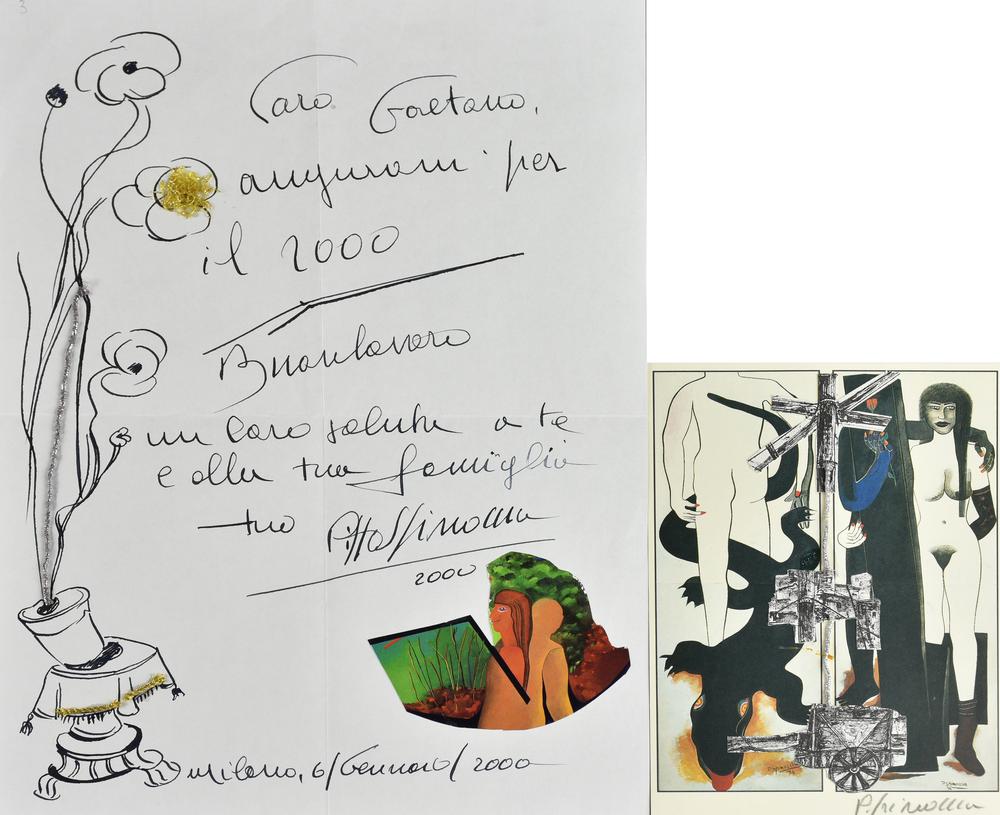 3
Caro Gaetano,
auguroni per
il 2000
Buonlavoro
un caro saluto a te
e alla tua famiglia
tuo
2000
Milano, 6/Gennaio/2000